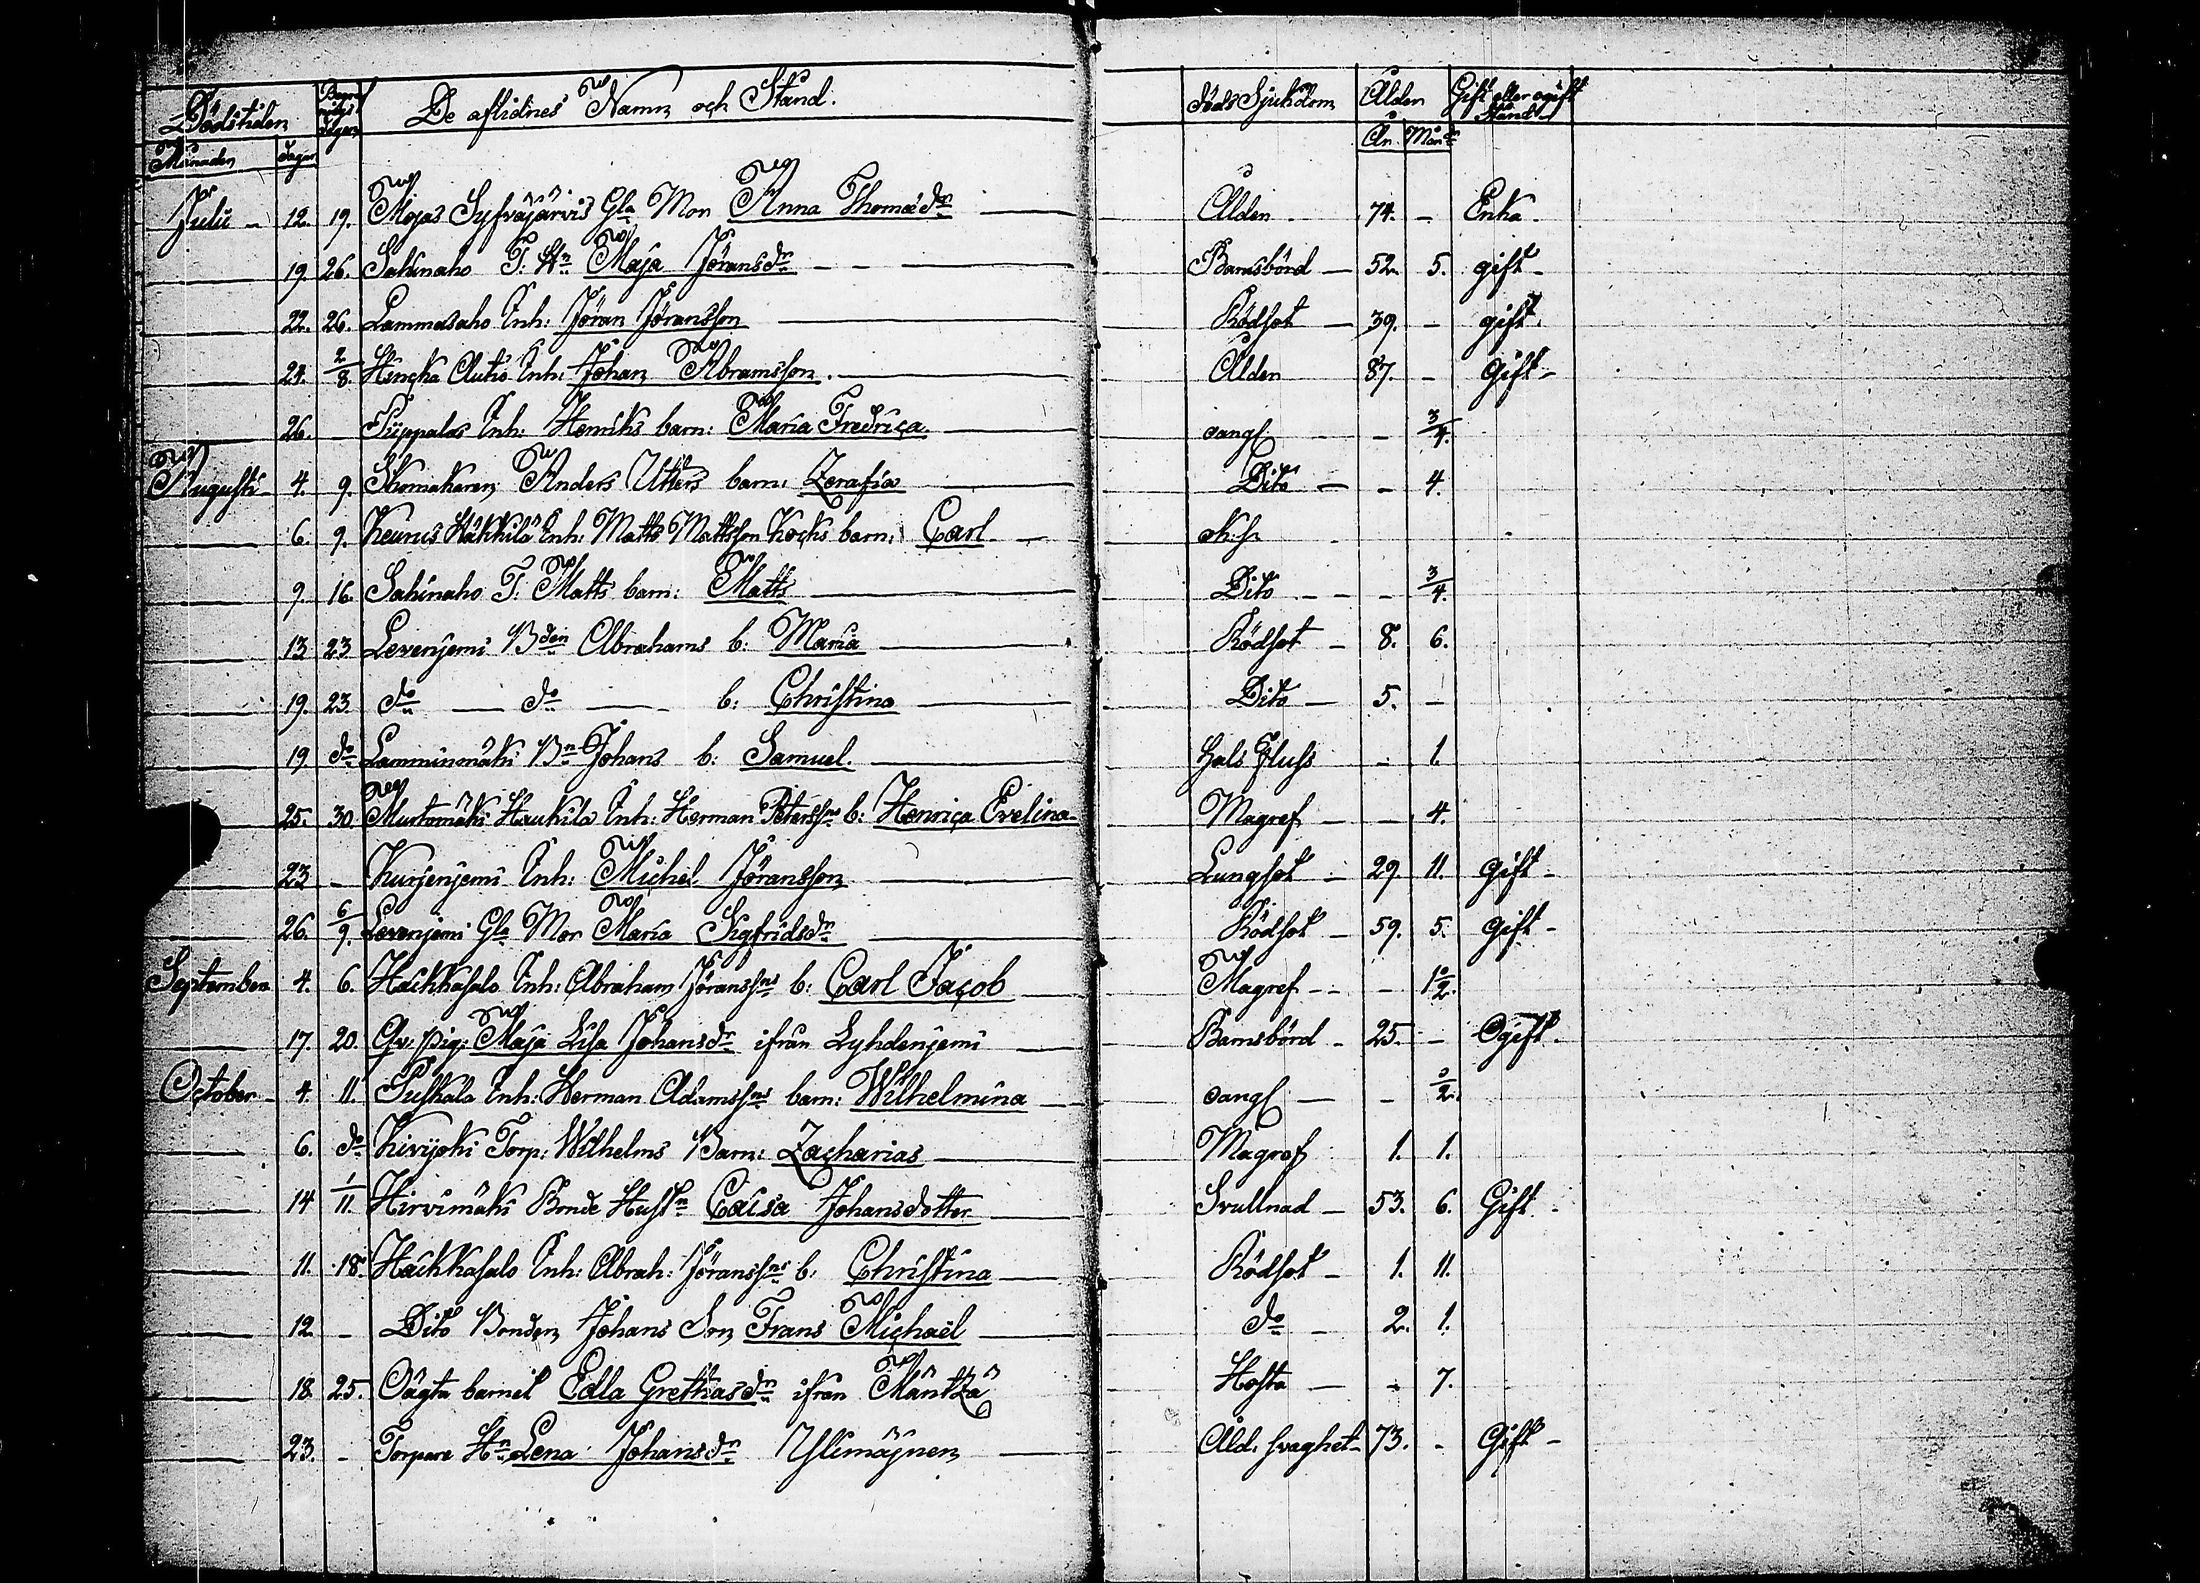 Dödstiden Begrafnings dagen De aflidnes Namn och Stånd. döds Sjukdom Ålder Gift eller ogift Stånd
Månaden dagen År. Mån:r
Julii 12. 19. Mojas Syfväjärvis Gla Mor Anna Thomædr Ålder 74. - Enka.
19. 26. Sahinaho T. Hn Maja Jöransdr Barnsbörd 52. 5. gift
22. 26. Lammasaho Inh: Jöran Jöransson Rödsot 39. - gift.
24. 2/8. Hencka Autio Inh: Johan Abramsson. Ålder 87. - Gift
26. Piippalas Inh: Henriks barn: Maria Fredrica oangf - 3/4.
Augusti 4. 9. Skomakaren Anders Utters barn: Zerafia Dito - 4.
6. 9. Keurus Häkkilä Inh: Matts Mattsson Kocks barn: Carl
9. 16 Sahinaho T: Matts barn: Matts Dito - 3/4.
13 23 Levenjemi Bden Abrahams b: Maria Rödsot 8. 6.
19. 23. do do b: Christina Dito 5. -
19 do Lamminmäki Bn Johans b: Samuel. Hals Fluss - 1.
25. 30 Murtomäki Haukila Inh: Herman Peterssns b: Henrica Evelina Magref - 4.
23 - Kurjenjemi Inh: Michel Jöransson Lungsot 29 11. Gift
26. 6/9. Levenjemi Gla Mor Maria Sigfridsdr Rödsot 59. 5. Gift
September 4. 6. Hackkasalo Inh: Abraham Jöranssns b: Carl Jacob Magref - 1 1/2.
17. 20. Qv: pig: Maja Lisa Johansdr ifrån Lyhdenjemi Barnsbörd 25. - Ogift.
October 4. 11. Puskala Inh: Herman Adamssns barn: Wilhelmina oangf - 1/2.
6. do Kivijoki Torp: Wilhelms Barn: Zacharias Magref 1. 1.
14 1/11. Hirvimäki Bonde Hustn Caisa Johansdotter Svullnad 53. 6. Gift
11. 18. Hackkasalo Inh: Abrah: Jöranssns b: Christina Rödsot 1. 11.
12. - Dito Bonden Johans Son Frans Michaël do 2. 1.
18. 25. Oägta barnet Edla Grethasdr ifrån Mäntzä Hosta - 7.
23. - Torpare Hn Lena Johansdr Ylimäjnen Åld. svaghet 73. - Gift